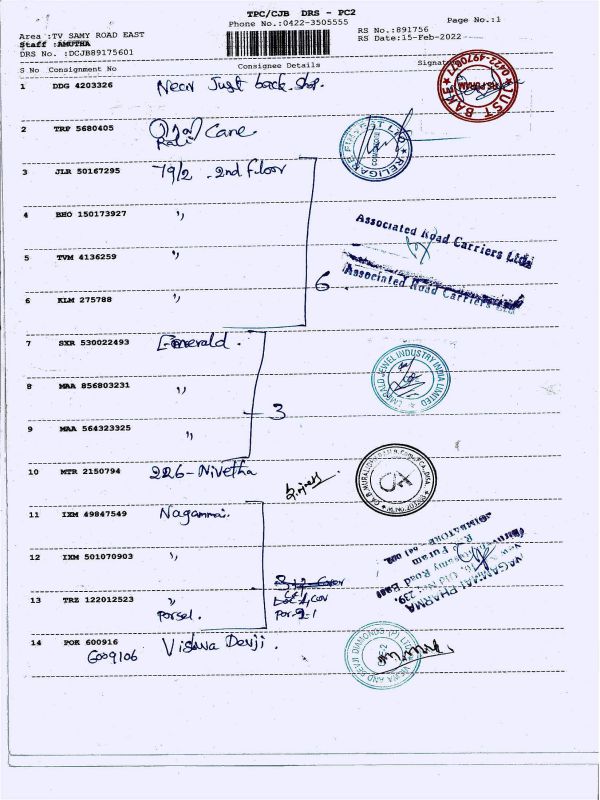 TPC/CJB DRS - PC2
Phone No.:0422-3505555
Page No.:1
Area :TV SAMY ROAD EAST
RS No.:891756
Staff :AMUTHA
RS Date:15-Feb-2022
DRS No. :DCJB89175601
S No Consignment No Consignee Details Signature
1 DDG 4203326 Near Just back shop.
JUST BAKE
2 TRP 5680405 Care
3 JLR 50167295 79/2 . 2nd floor
4 BHO 150173927 "
Associated Road Carriers Ltd
5 TVM 4136259 "
Associated Road Carriers Ltd
6 KLM 275788 "
6
7 SXR 530022493 Emerald .
EMERALD JEWEL INDUSTRY INDIA LIMITED
8 MAA 856803231 "
3
9 MAA 564323325 "
10 MTR 2150794 226-Nivetha
CA
11 IXM 49847549 Nagammai.
12 IXM 501070903 "
NAGAMMAI PHARMA
13 TRZ 122012523 "
Porsel.
14 POK 600916 Viswa Devji .
G009106
VISWA AND DEVJI DIAMONDS (P) LTD